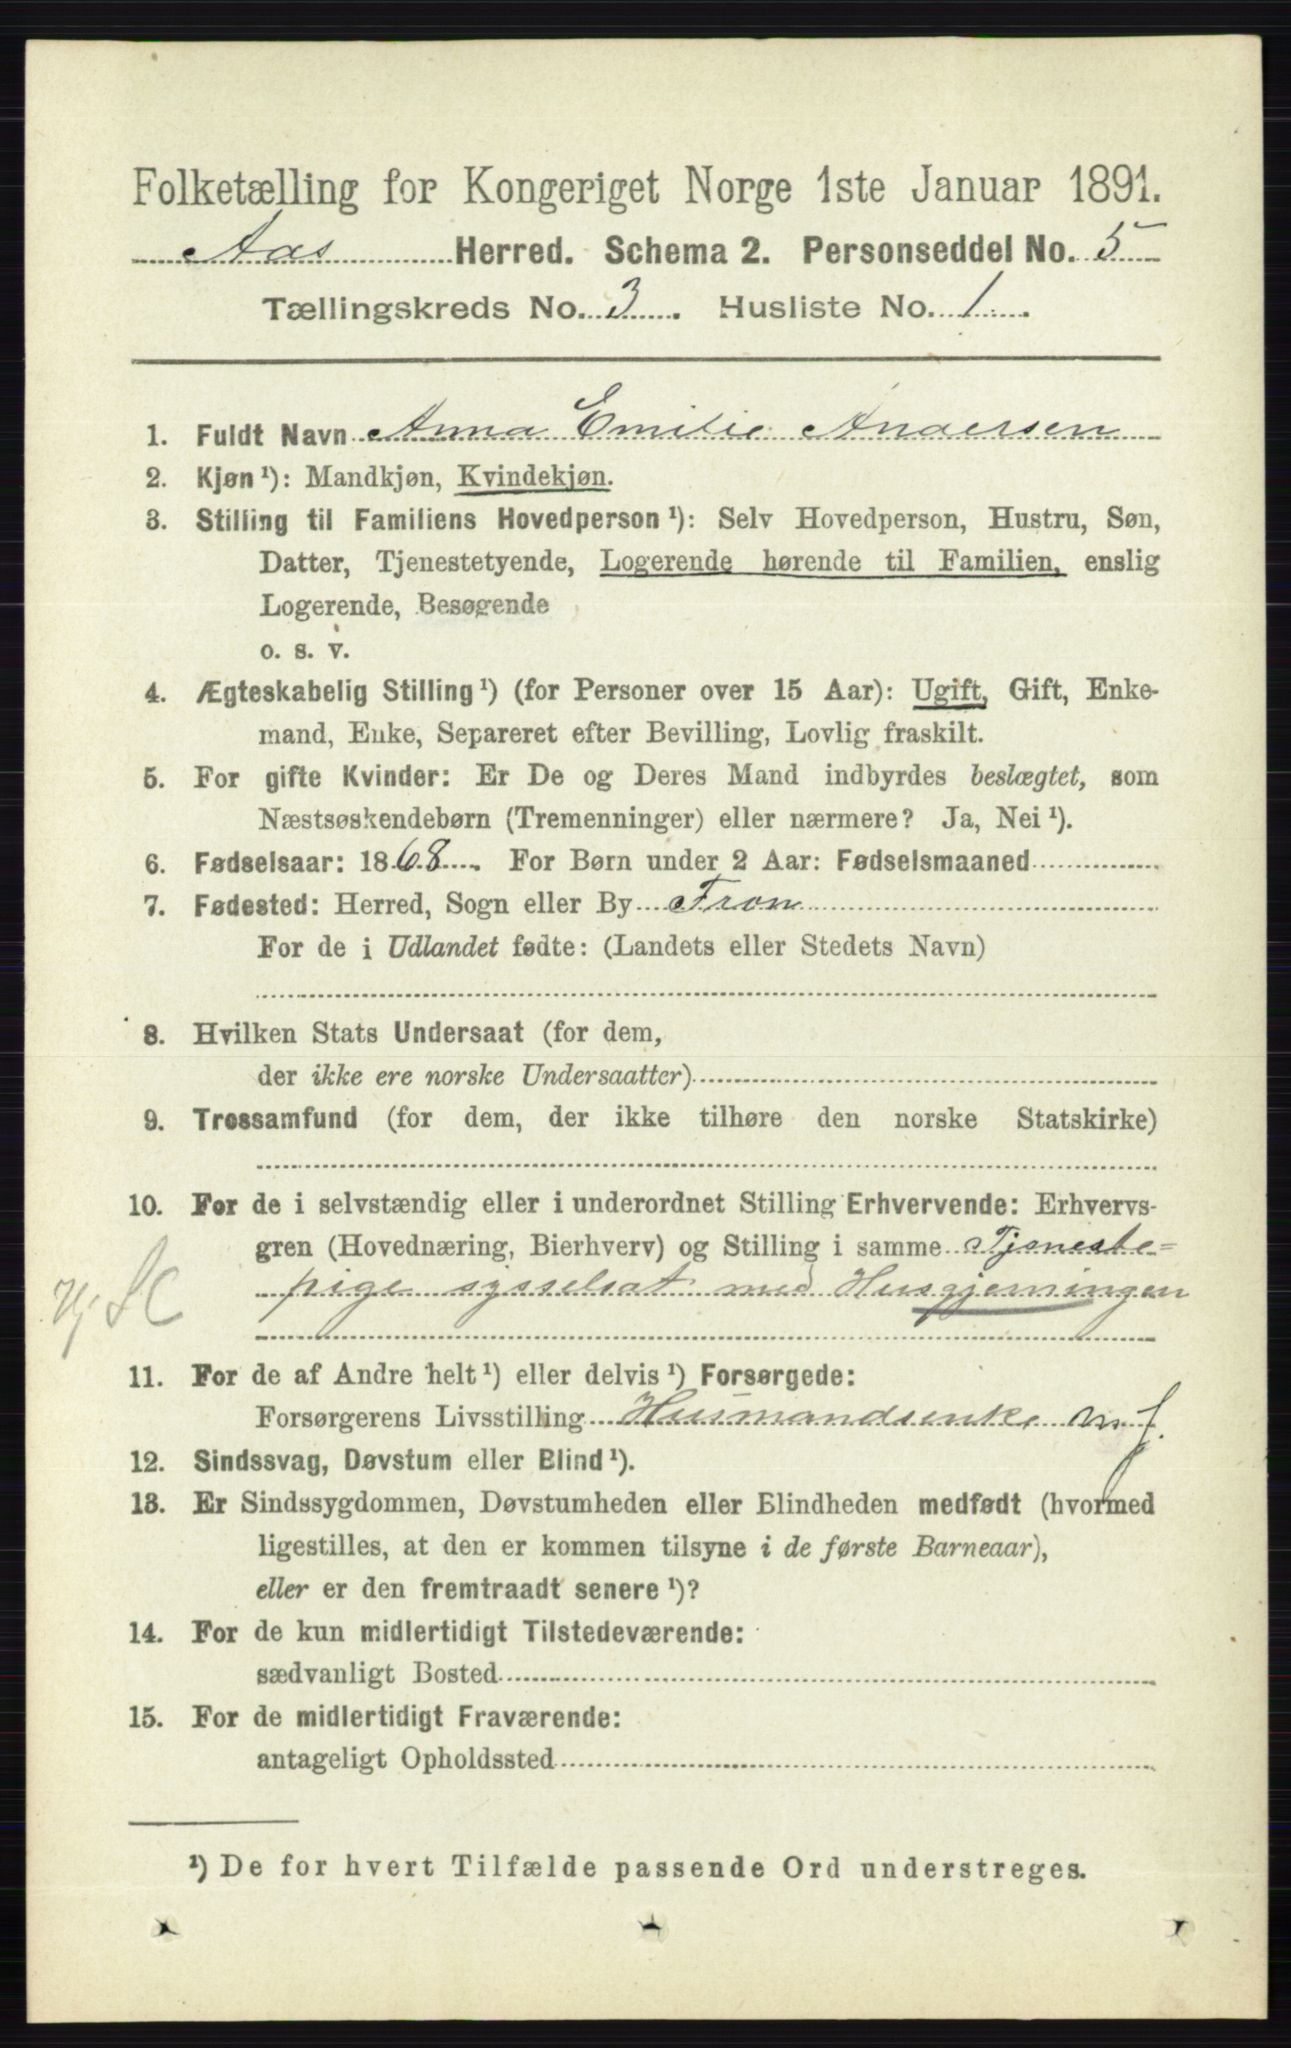 Folketælling for Kongeriget Norge 1ste Januar 1891.
Aas Herred. Schema 2. Personseddel No. 5
Tællingskreds No. 3. Husliste No. 1.
1. Fuldt Navn Anna Emilie Andersen
2. Kjøn ¹): Mandkjøn, Kvindekjøn.
3. Stilling til Familiens Hovedperson ¹): Selv Hovedperson, Hustru, Søn,
Datter, Tjenestetyende, Logerende hørende til Familien, enslig
Logerende, Besøgende
o. s. v.
4. Ægteskabelig Stilling ¹) (for Personer over 15 Aar): Ugift, Gift, Enke-
mand, Enke, Separeret efter Bevilling, Lovlig fraskilt.
5. For gifte Kvinder: Er De og Deres Mand indbyrdes beslægtet, som
Næstsøskendebørn (Tremenninger) eller nærmere? Ja, Nei ¹).
6. Fødselsaar: 1868. For Børn under 2 Aar: Fødselsmaaned
7. Fødested: Herred, Sogn eller By Fron
For de i Udlandet fødte: (Landets eller Stedets Navn)
8. Hvilken Stats Undersaat (for dem,
der ikke ere norske Undersaatter)
9. Trossamfund (for dem, der ikke tilhøre den norske Statskirke)
10. For de i selvstændig eller i underordnet Stilling Erhvervende: Erhvervs-
gren (Hovednæring, Bierhverv) og Stilling i samme Tjeneste=
pige sysselsat med Husgjerningen
11. For de af Andre helt ¹) eller delvis ¹) Forsørgede:
Forsørgerens Livsstilling Husmandsenke m J.
12. Sindssvag, Døvstum eller Blind ¹).
13. Er Sindssygdommen, Døvstumheden eller Blindheden medfødt (hvormed
ligestilles, at den er kommen tilsyne i de første Barneaar),
eller er den fremtraadt senere ¹)?
14. For de kun midlertidigt Tilstedeværende:
sædvanligt Bosted
15. For de midlertidigt Fraværende:
antageligt Opholdssted
¹) De for hvert Tilfælde passende Ord understreges.